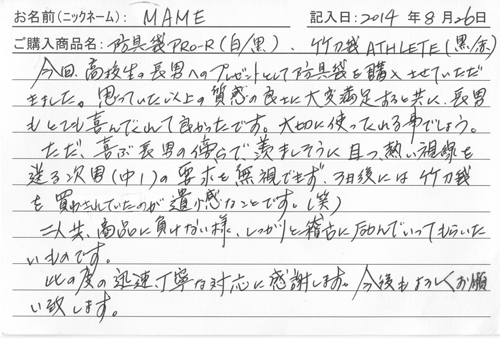 お名前(ニックネーム): MAME 記入日: 2014 年 8 月 26日
ご購入商品名: 防具袋PRO-R(白/黒)、竹刀袋ATHLETE(黒/赤)
今回、高校生の長男へのプレゼントとして防具袋を購入させていただ
きました。思っていた以上の質感の良さに大変満足すると共に、長男
もとても喜んでくれて良かったです。大切に使ってくれる事でしょう。
ただ、喜ぶ長男の傍らで、羨ましそうに且つ、熱い視線を
送る次男(中1)の要求を無視できず、3日後には竹刀袋
を買わされていたのが遺憾なことです。(笑)
二人共、商品に負けない様、しっかりと稽古に励んでいってもらいた
いものです。
此の度の迅速、丁寧な対応に感謝します。今後もよろしくお願
い致します。